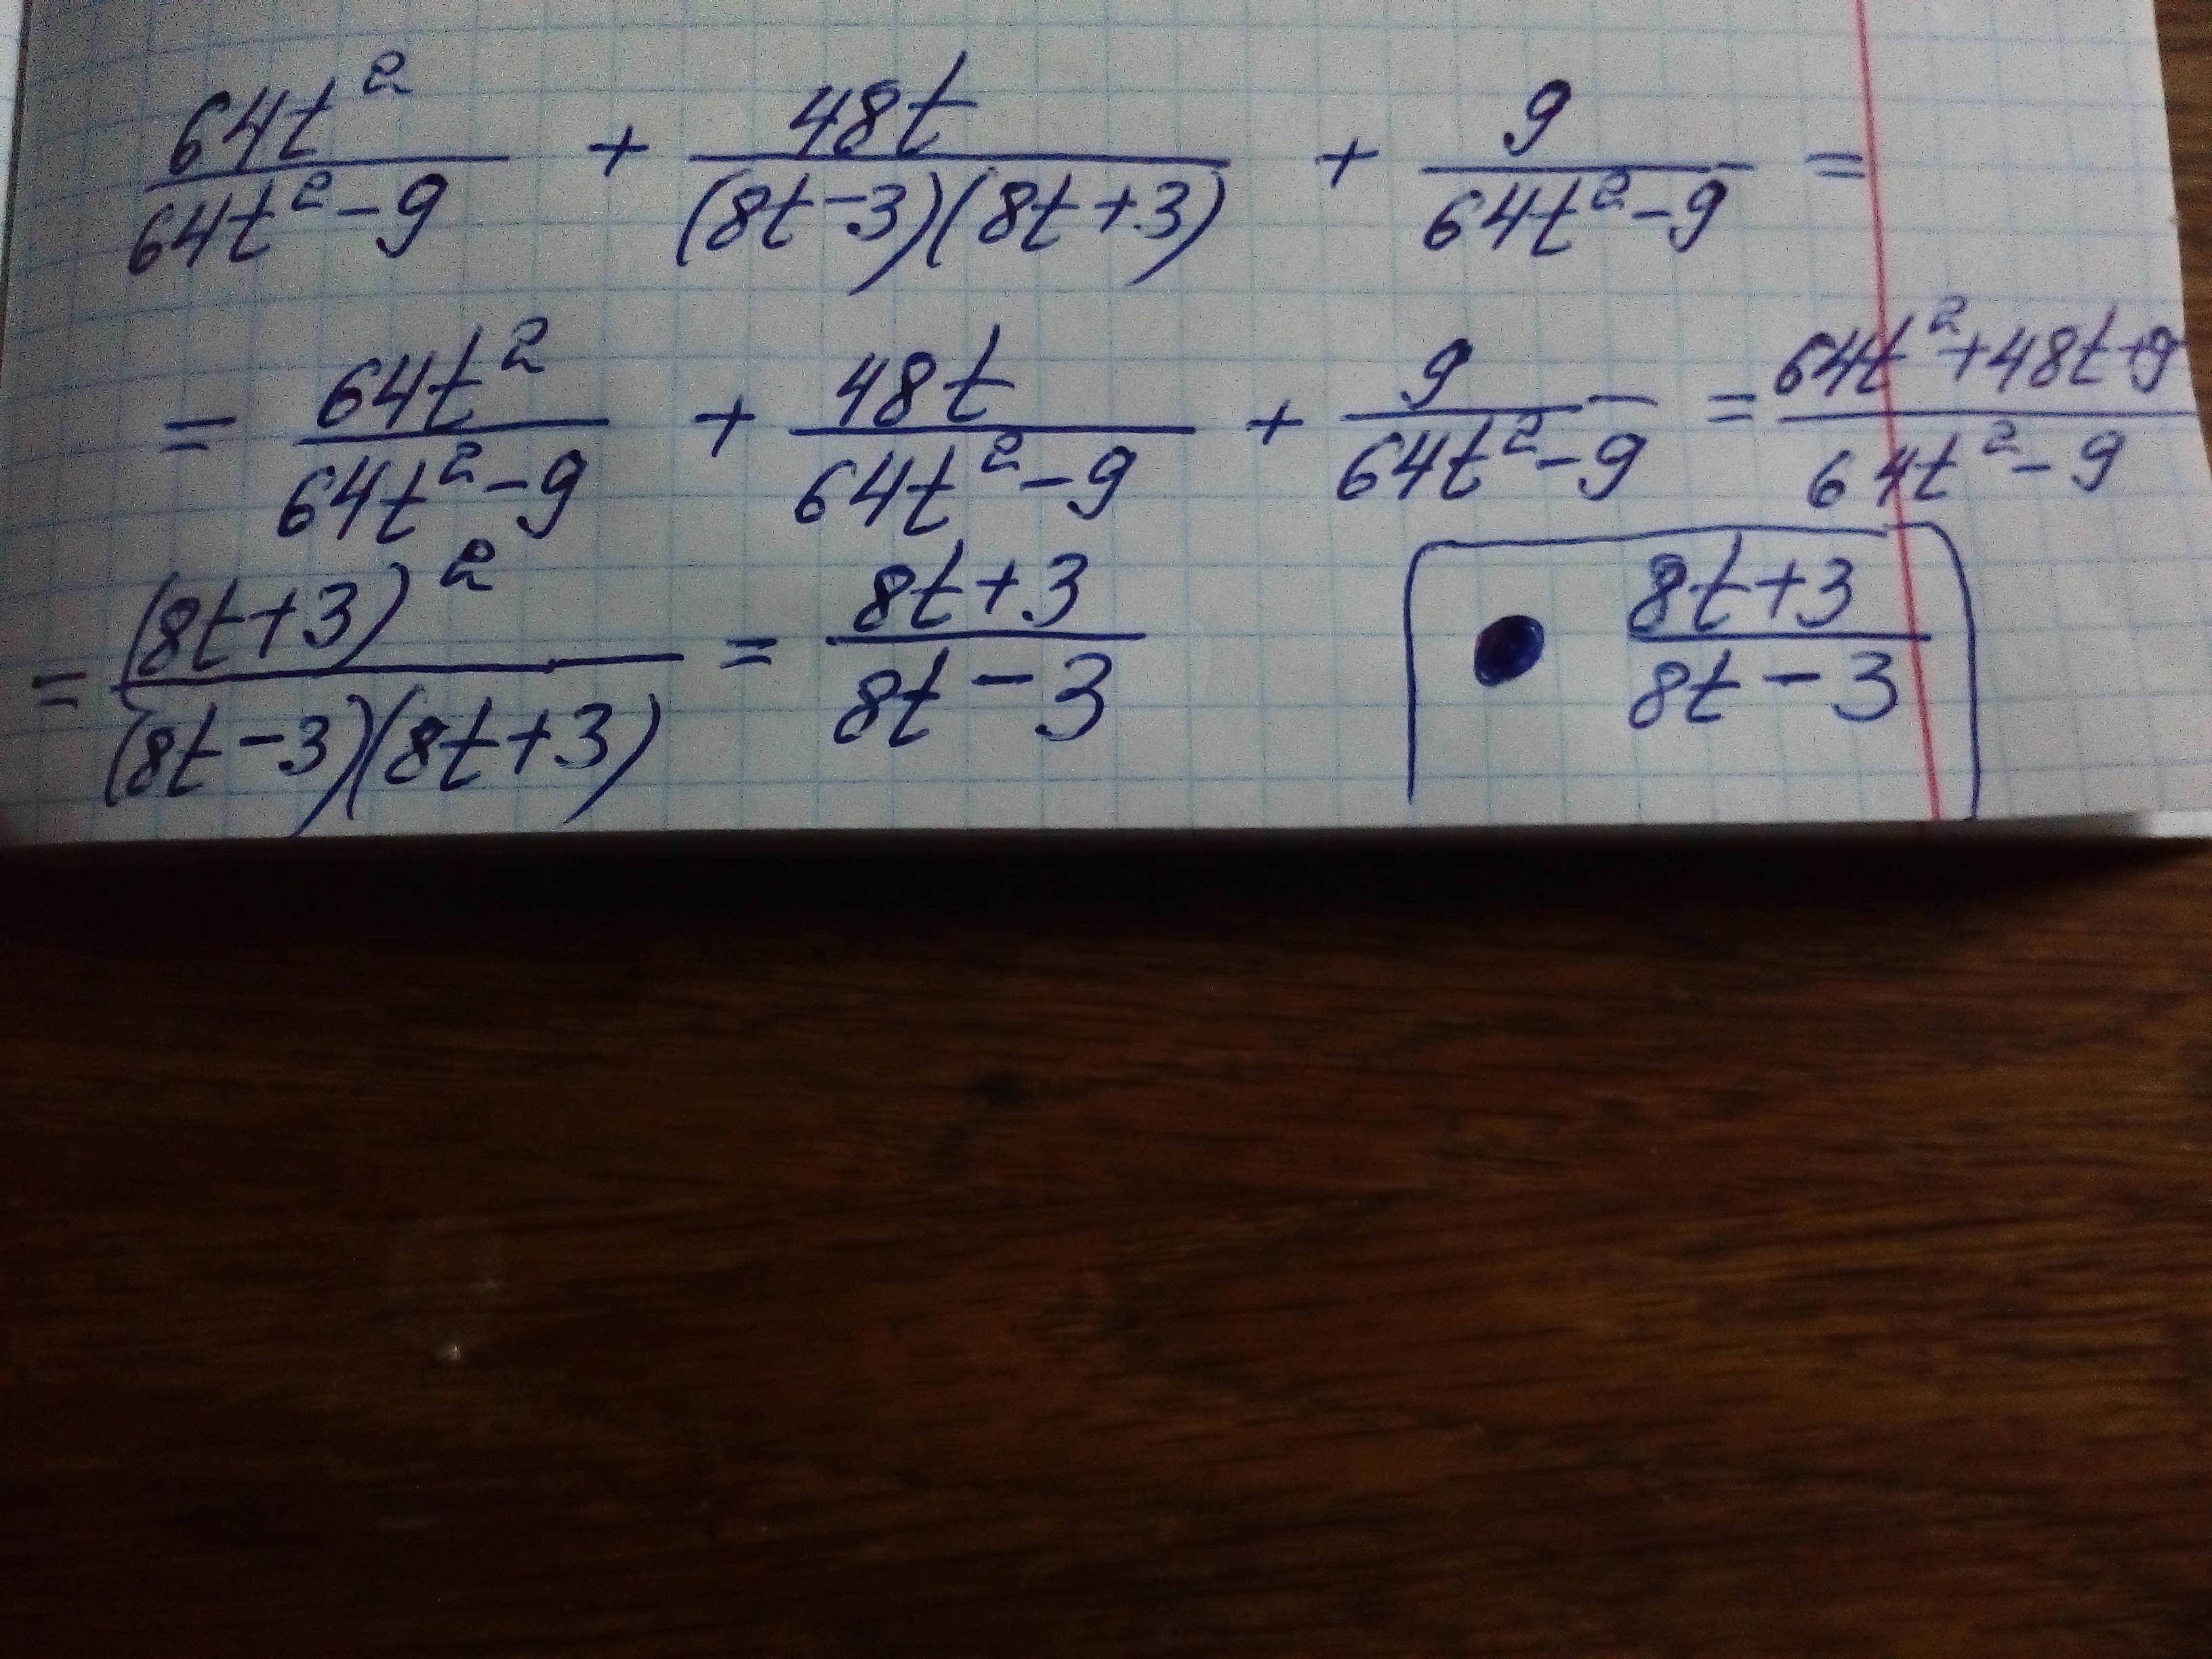 64t²/(64t²-9) + 48t/((8t-3)(8t+3)) + 9/(64t²-9) =
= 64t²/(64t²-9) + 48t/(64t²-9) + 9/(64t²-9) = (64t²+48t+9)/(64t²-9)
= (8t+3)²/((8t-3)(8t+3)) = (8t+3)/(8t-3) • (8t+3)/(8t-3)